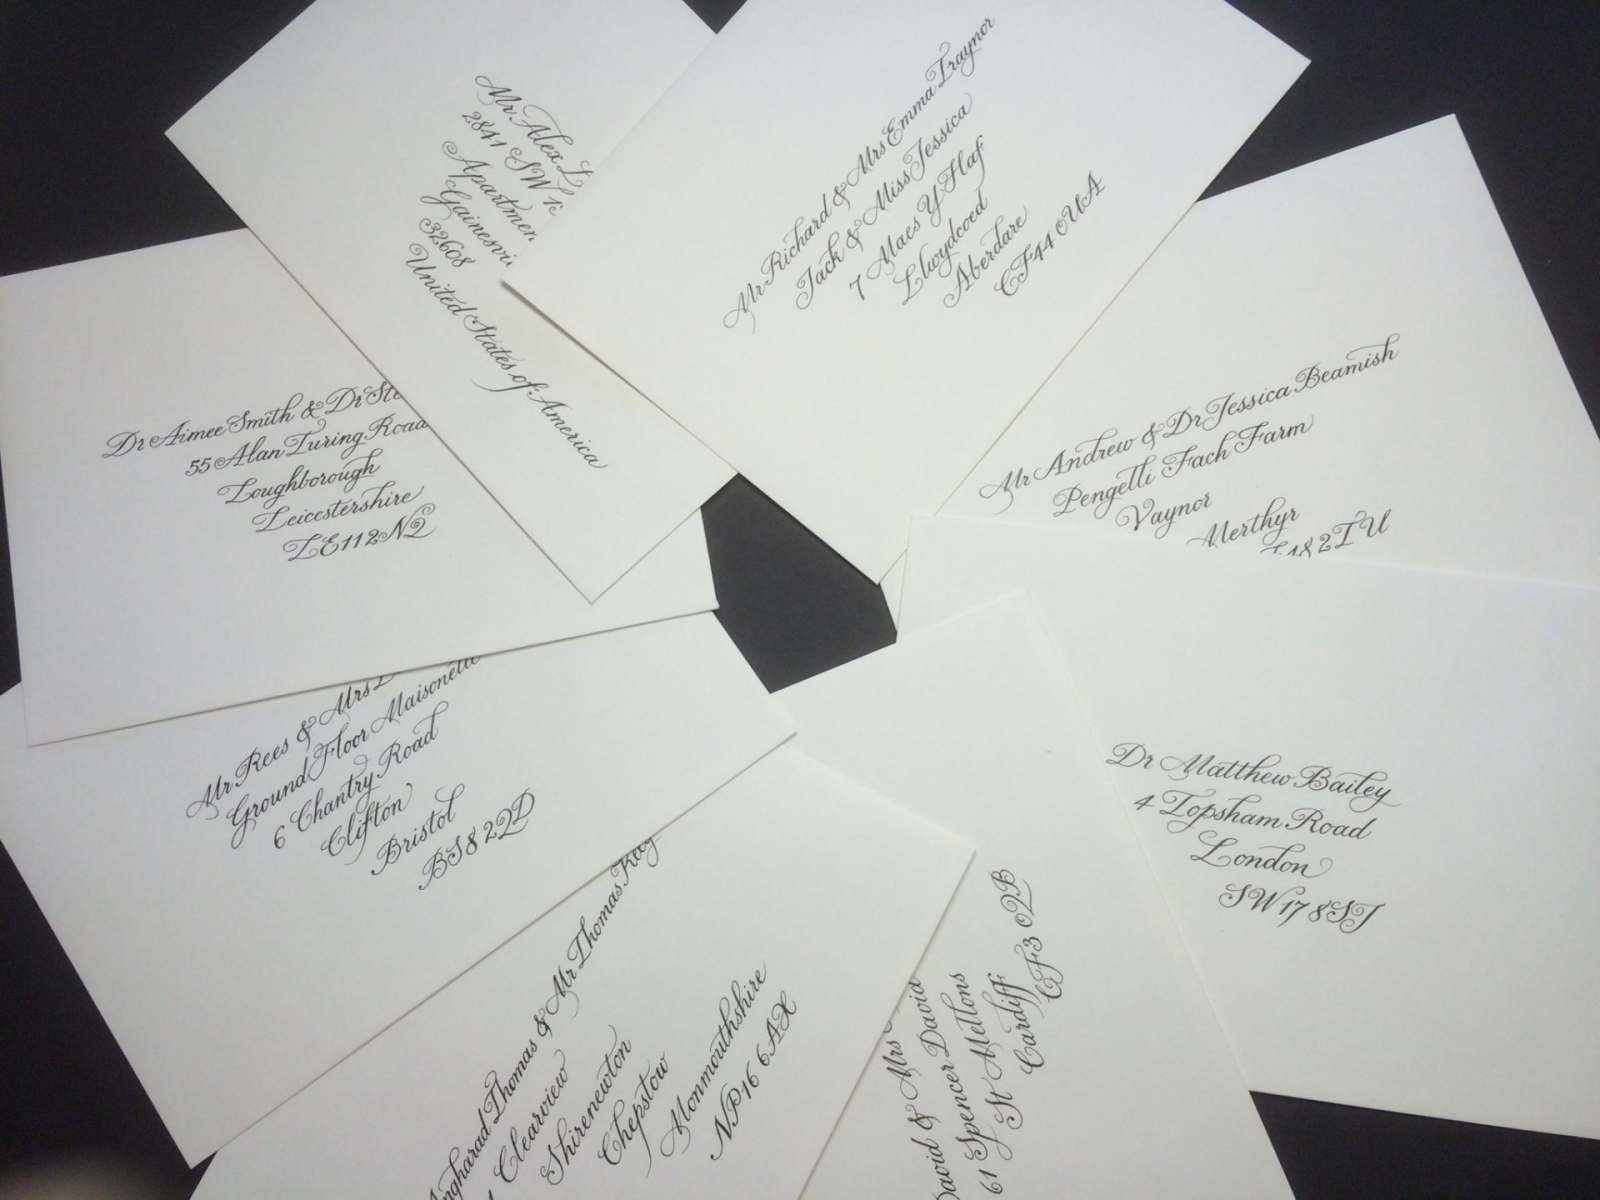 Mr Alex
2841 SW
Gainesvi
32608
United States of America
Mr Richard & Mrs Emma Traynor
Jack & Miss Jessica
7 Maes Y Haf
Llwydcoed
Aberdare
CF44 0UA
Mr Andrew & Dr Jessica Beamish
Pengelli Fach Farm
Vaynor
Merthyr
2TU
Dr Aimee Smith & Dr Ste
55 Alan Turing Road
Loughborough
Leicestershire
LE11 2NZ
Mr Rees & Mrs
Ground Floor Maisonette
6 Chantry Road
Clifton
Bristol
BS8 2QD
Dr Matthew Bailey
4 Topsham Road
London
SW17 8SJ
ngharad Thomas & Mr Thomas
Clearview
Shirenewton
Chepstow
Monmouthshire
NP16 6AX
David & Mrs
Spencer David
61 Spencer David Mellons
St Mellons
Cardiff
CF3 0QB